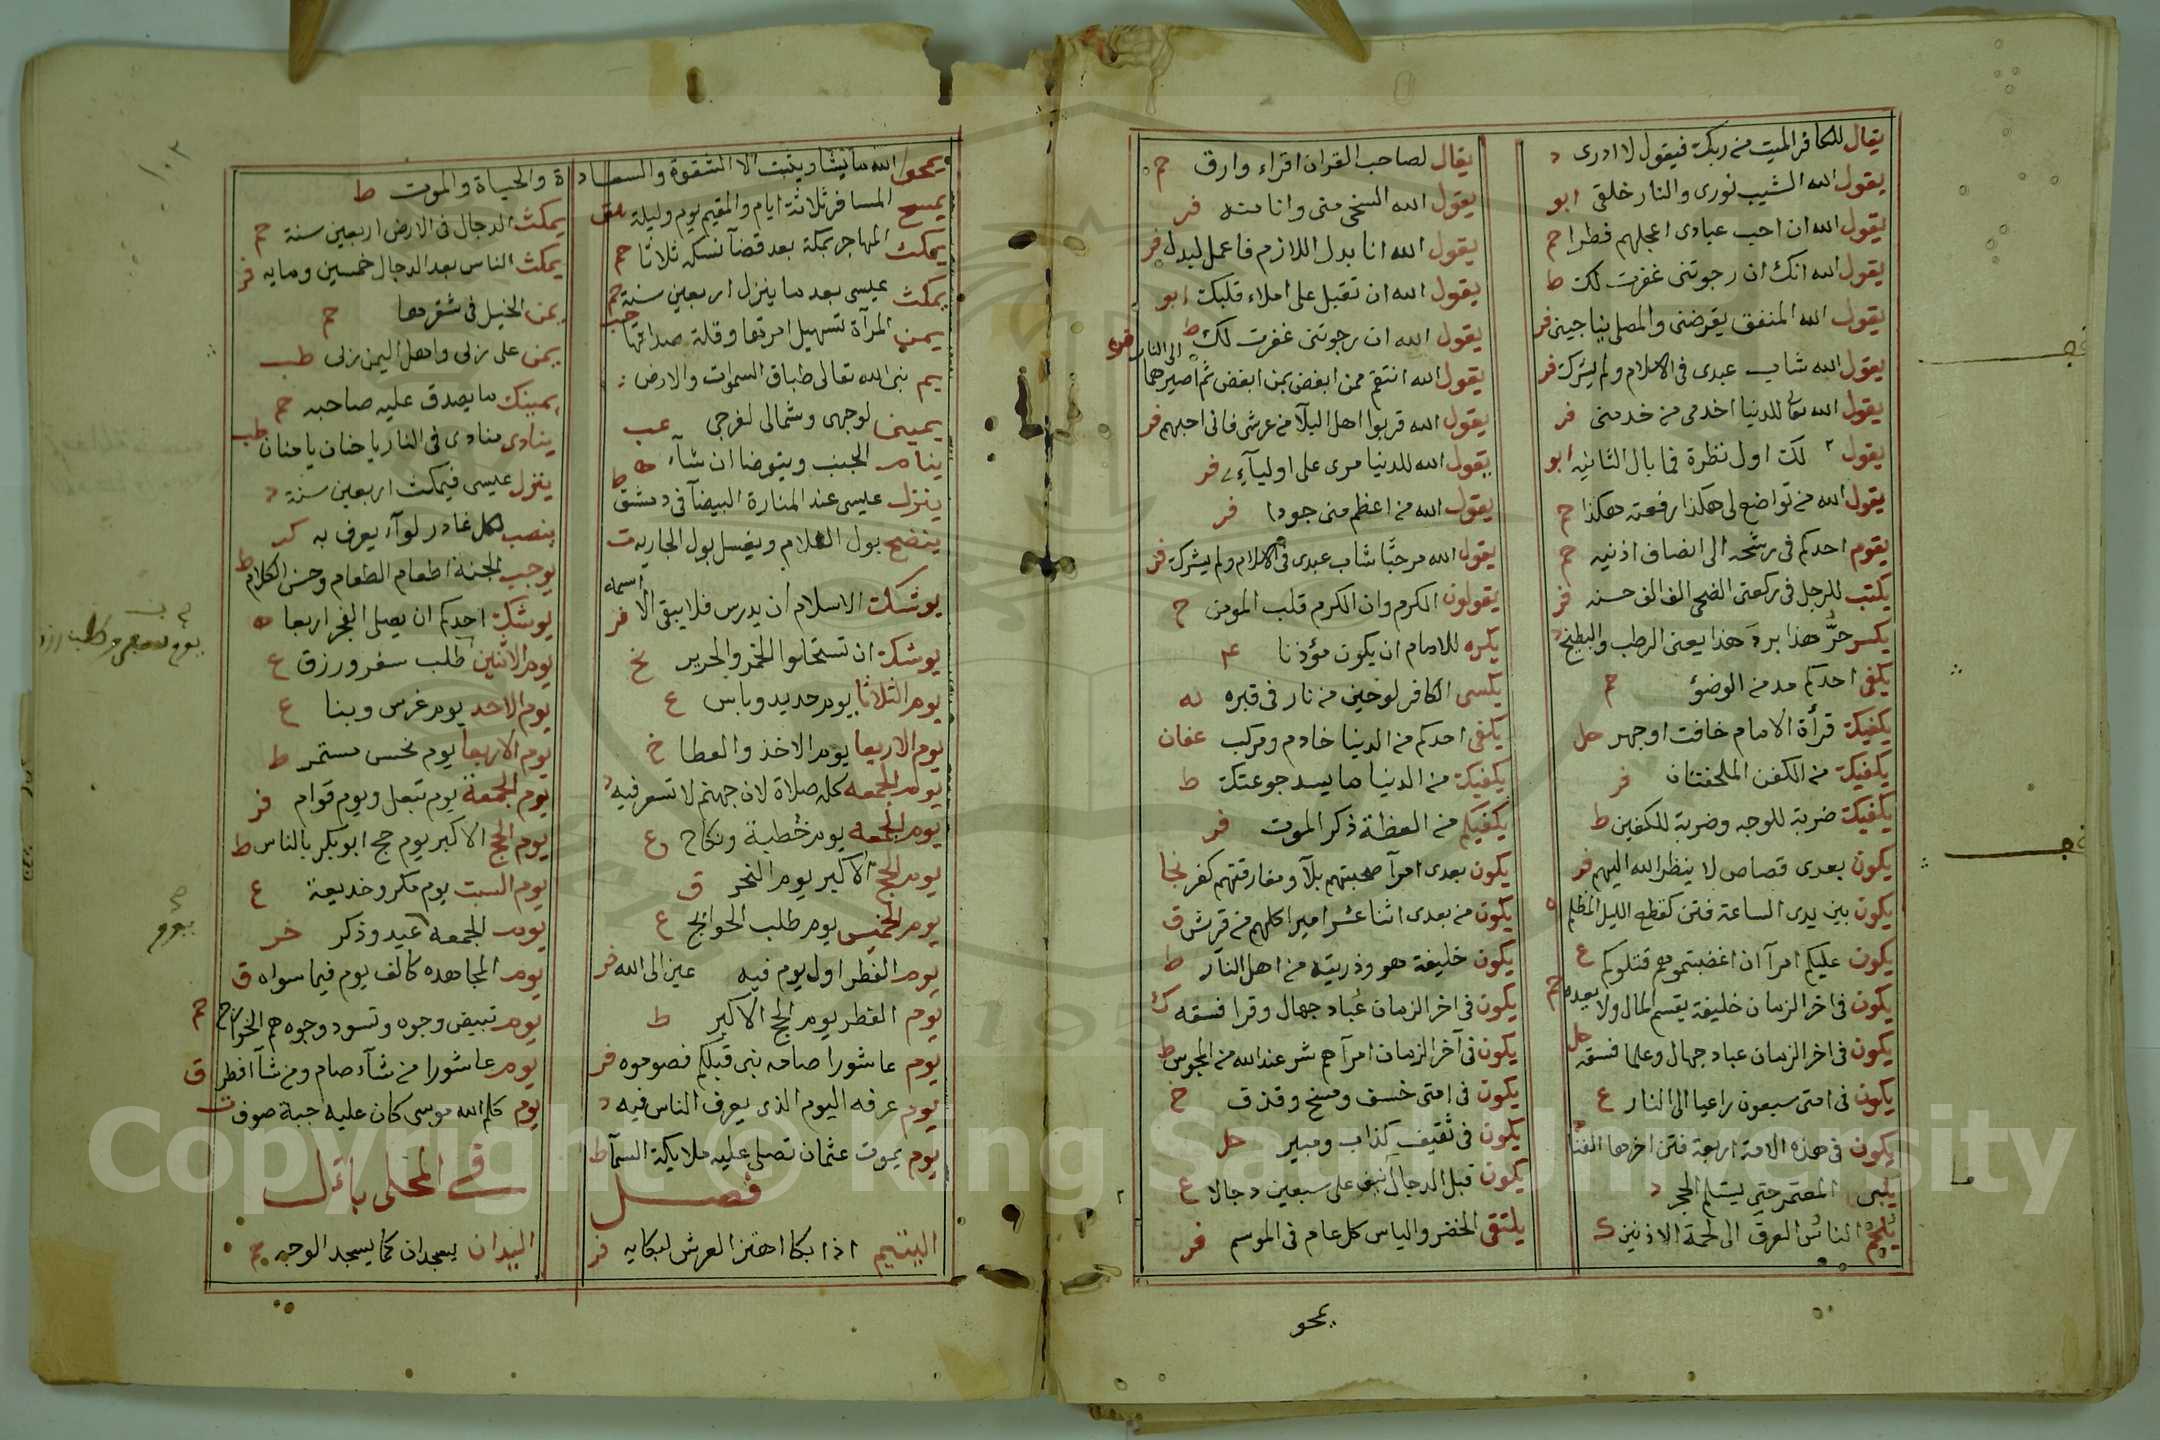 يقال للكافر الميت من ربك فيقول لا ادرى د
يقول الله الشيب نورى والنار خلقى ابو
يقول الله ان احب عبادى اعجلهم فطرا حم
يقول الله انك ان رجوتنى غفرت لك ط
يقول الله المنفق يقرضنى والمصلى يناجينى فر
يقول الله شاب عبدى فى الاسلام ولم يشرك فر
يقول الله تعالى للدنيا اخدمى من خدمنى فر
يقول لك اول نظرة فما بال الثانيه ابو
يقول الله من تواضع لى هكذا رفعته هكذا حم
يقوم احدكم فى رشحه الى انصاف اذنيه حم
يكتب للرجل فى ركعتى الضحى الف الف حسنه فر
يكسر حرّ هذا برد هذا يعنى الرطب والبطيخ د
يكفى احدكم مد من الوضؤ حم
يكفيك قرأة الامام خافت اوجهر حل
يكفيك من الكفن الملحفتان فر
يكفيك ضربة للوجه وضربة للكفين ط
يكون بعدى قصاص لا ينظر الله اليهم فر
يكون بين يدى الساعة فتن كقطع الليل المظلم
يكون عليكم امرآ ان اغضبتموهم قتلوكم ع
يكون فى اخر الزمان خليفة يقسم المال ولا يعده حم
يكون فى اخر الزمان عباد جهال وعلما فسقه حل
يكون فى امتى سبعون راعيا الى النار ع
يكون فى هذه الامة اربعة فتن اخرها الفنا
يلبى المعتمر حتى يستلم الحجر د
يلجم الناس العرق الى لحمة الاذنين
يقال لصاحب القران اقراء وارق حم
يقول الله السخى منى وانا منه فر
يقول الله انا بدل اللازم فاعمل لبدل فر
يقول الله ان تقبل على املاء قلبك ابو
يقول الله ان رجوتنى غفرت لك ط
يقول الله انتقم ممن ابغض بمن ابغض ثم اصيرهما الى النار
يقول الله قربوا اهل البلآ من عرشى فانى احبهم فر
يقول الله للدنيا مرى على اوليآءى فر
يقول الله من اعظم منى جودا فر
يقول الله مرحبًا شاب عبدى فى الاسلام ولم يشرك فر
يقولون الكرم وان الكرم قلب المومن خ
يكره للامام ان يكون مؤذنا
يكسى الكافر لوحين من نار فى قبره
يكفى احدكم من الدنيا خادم ومركب عفان
يكفيك من الدنيا ما يسد جوعتك ط
يكفيكم من العظة ذكر الموت فر
يكون بعدى امرآ صحبتهم بلآ ومفارقتهم كفر نجا
يكون من بعدى اثنا عشر اميرا كلهم من قريش ق
يكون خليفة هو وذريته من اهل النار ط
يكون فى اخر الزمان عباد جهال وقرا فسقه ك
يكون فى آخر الزمان امرآ هم شر عند الله من المجوس ط
يكون فى امتى خسف ومسخ وقذف خ
يكون فى ثقيف كذاب ومبير حل
يكون قبل الدجال نيف على سبعين دجالا ع
يلتقى الخضر والياس كل عام فى الموسم فر
يمحو
يمحو الله ما يشا ويثبت الا الشقوة والسعادة والحياة والموت ط
يمسح المسافر ثلاثة ايام والمقيم يوم وليلة
يمكث المهاجر بمكة بعد قضآ نسكه ثلاثا حم
يمكث عيسى بعد ما ينزل اربعين سنة حم
يمن المرآة تسهيل امرها وقلة صداقها حب
يم نبى الله تعالى طباق السموات والارض
يمينى لوجهى وشمالى لفرجى عب
ينام الجنب ويتوضا ان شآء ط
ينزل عيسى عند المنارة البيضآ فى دمشق ط
ينضح بول الغلام ويغسل بول الجاريه ت
يوشك الاسلام ان يدرس فلا يبقى الا اسمه فر
يوشك ان تستحلوا الخمر والحرير خ
يوم الثلاثا يوم حديد وباس ع
يوم الاربعا يوم الاخذ والعطا خ
يوم الجمعه كله صلاة لان جهنم لا تسعر فيه د
يوم الجمعه يوم خطبة ونكاح ع
يوم الحج الاكبر يوم النحر ق
يوم الخميس يوم طلب الحوائج ع
يوم الفطر اول يوم فيه عين الى الله فر
يوم الفطر يوم الحج الاكبر ط
يوم عاشورا صامه نبى قبلكم فصوموه فر
يوم عرفه اليوم الذى يعرف الناس فيه د
يوم يموت عثمان تصلى عليه ملايكة السمآ ط
فصل
اليتيم اذا بكا اهتز العرش لبكايه فر
يمكث الدجال فى الارض اربعين سنة حم
يمكث الناس بعد الدجال خمسين ومايه فر
يمن الخيل فى شقرها حم
يمينك ما يصدق عليه صاحبه حم
ينادى منادى فى النار يا حنان يا منان طب
ينزل عيسى فيمكث اربعين سنة د
ينصب لكل غادر لوآء يعرف به كر
يوجب الجنة اطعام الطعام وحسن الكلام ط
يوشك احدكم ان يصلى الفجر اربعا ه
يوم الاثنين طلب سفر ورزق ع
يوم الاحد يوم غرس وبنا ع
يوم الاربعا يوم نحس مستمر ط
يوم الجمعة يوم تبعل ويوم قوام فر
يوم الحج الاكبر يوم حج ابو بكر بالناس ط
يوم السبت يوم مكر وخديعة ع
يوم الجمعه عيد وذكر خر
يوم المجاهده كالف يوم فيما سواه ق
يوم تبيض وجوه وتسود وجوه هم الخوارج حم
يوم عاشورا من شآء صام ومن شآ افطر ق
يوم كلم الله موسى كان عليه جبة صوف ت
فى المحلى بال
اليدان يسجدان كما يسجد الوجه حم
١٠٢
Copyright © King Saud University
195